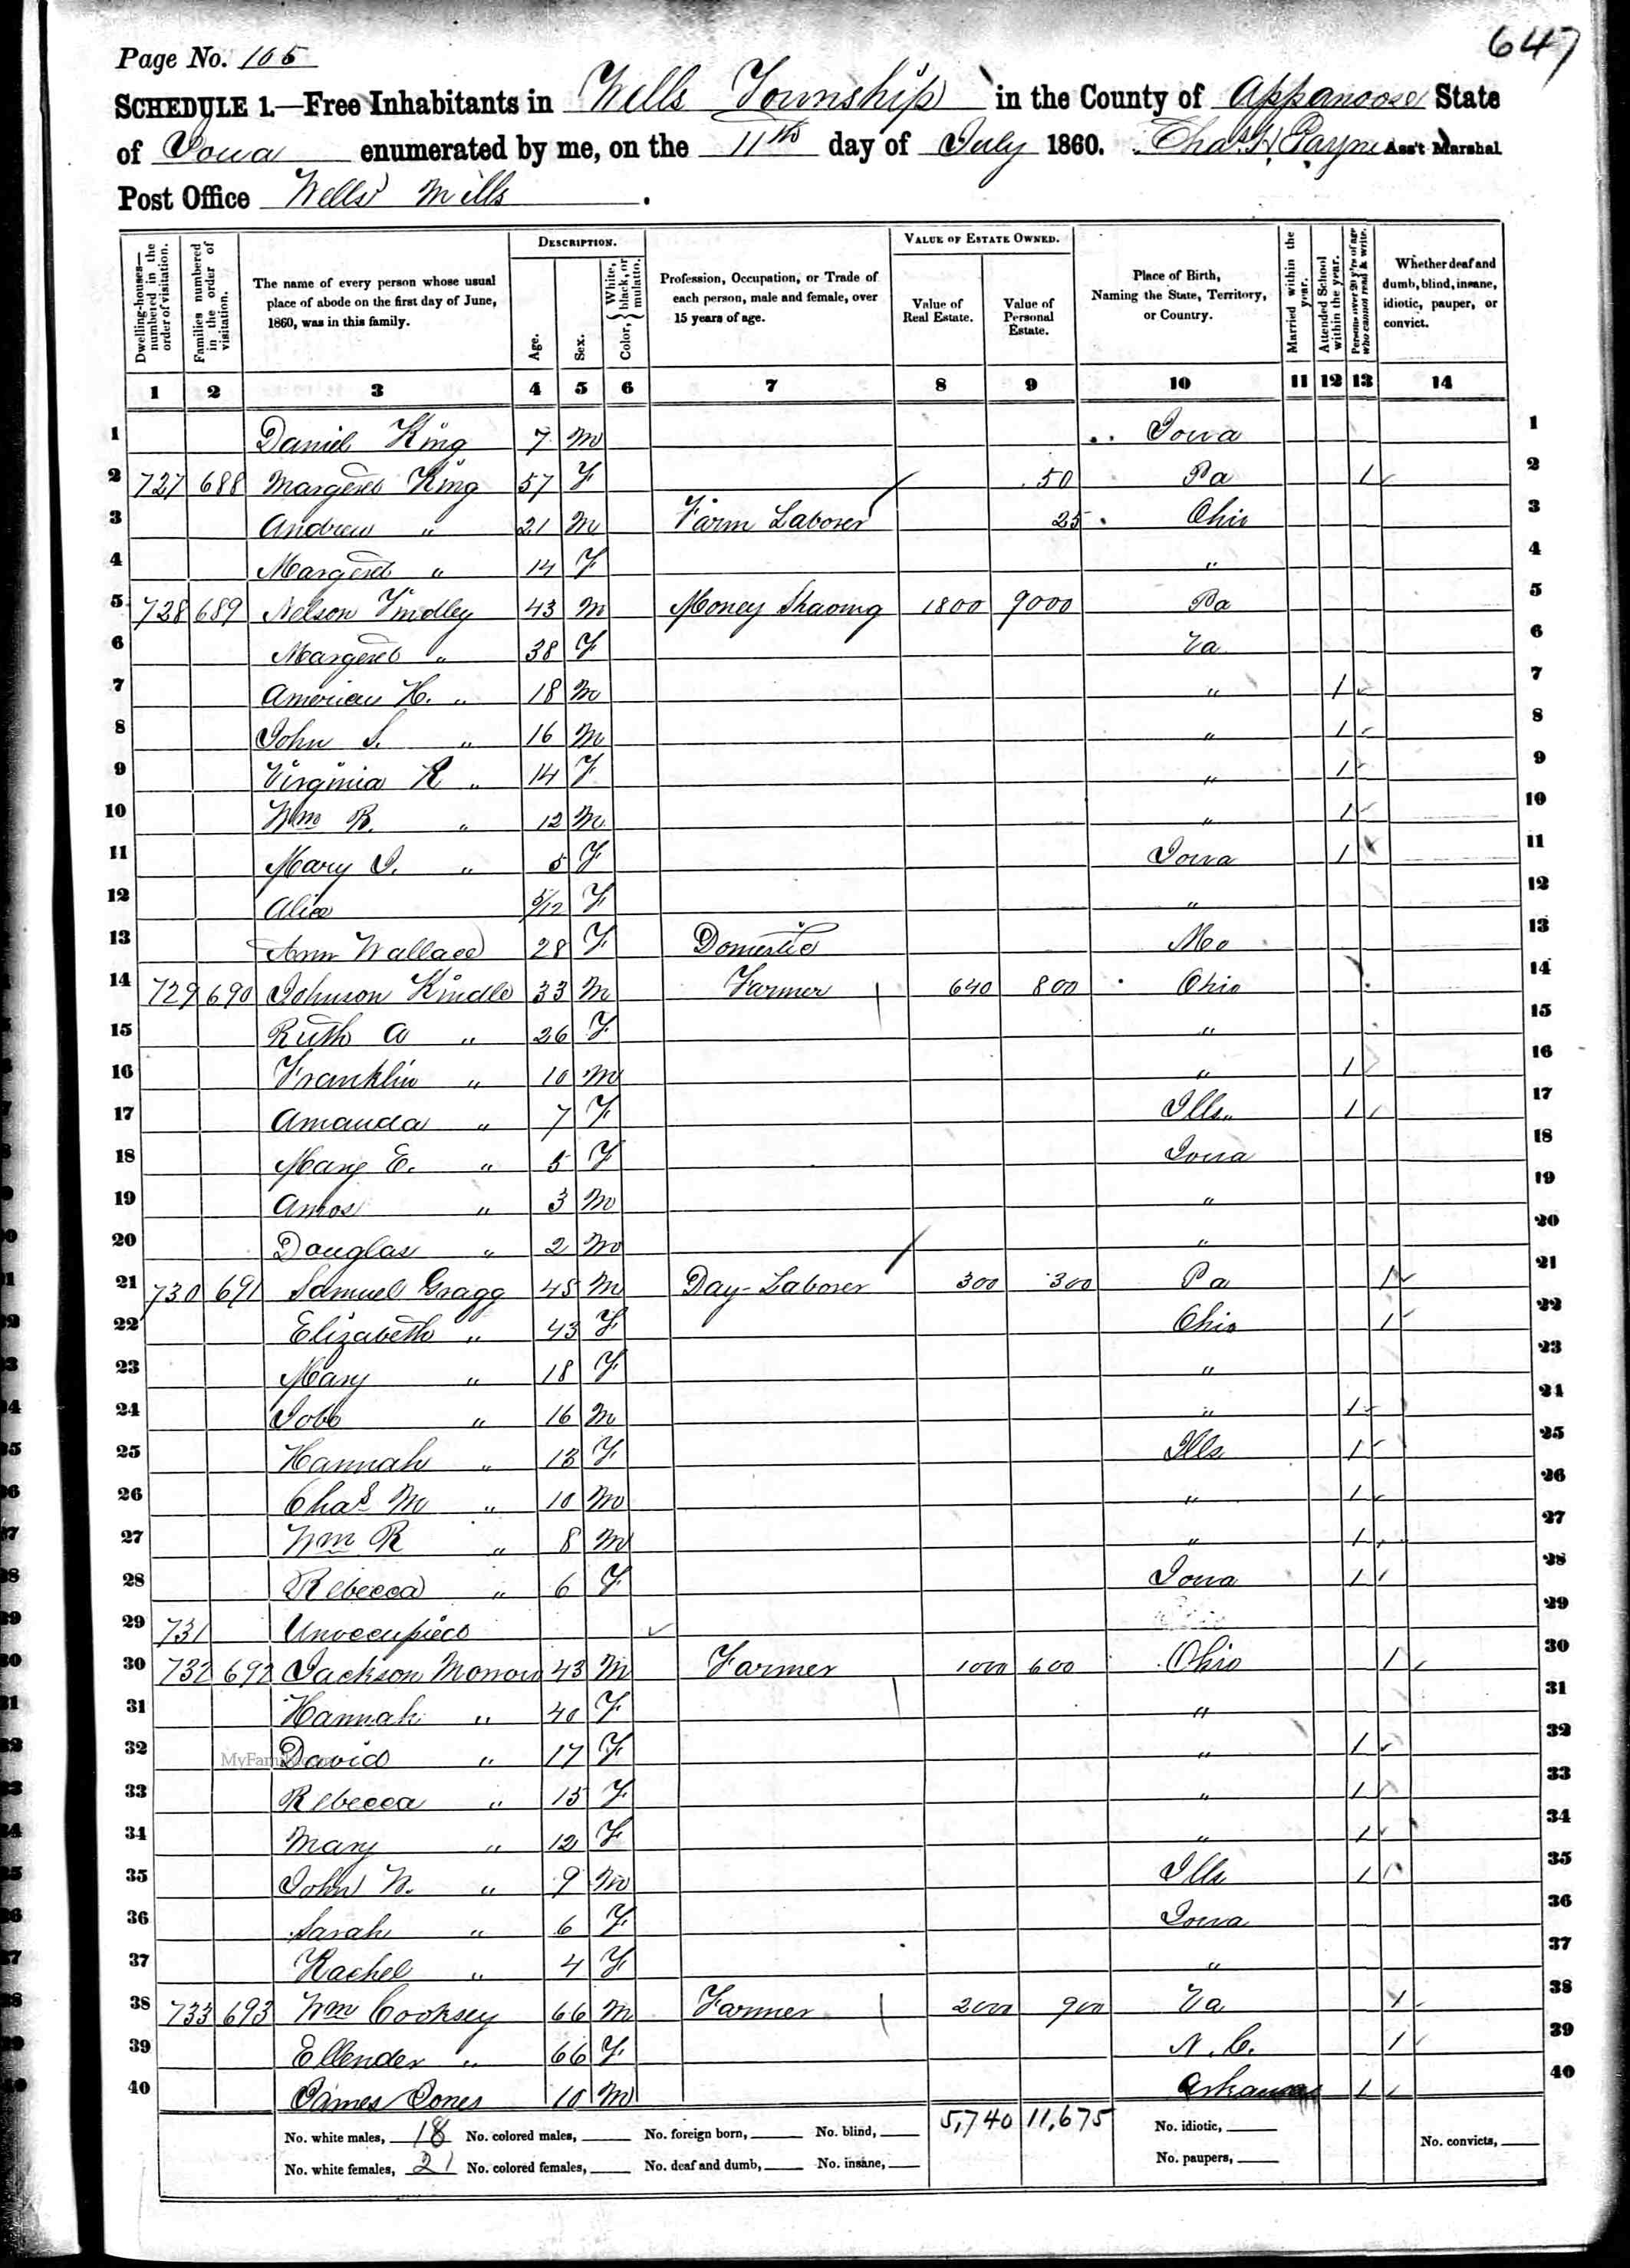 647
Page No. 105
SCHEDULE 1.—Free Inhabitants in Wells Township in the County of Appanoose State
of Iowa enumerated by me, on the 11th day of July 1860. Chas. H. Payne Ass't Marshal
Post Office Wells Mills.
Dwelling-houses—numbered in the order of visitation.
Families numbered in the order of visitation.
The name of every person whose usual place of abode on the first day of June, 1860, was in this family.
DESCRIPTION.
Age.
Sex.
Color, { White, black, or mulatto.
Profession, Occupation, or Trade of each person, male and female, over 15 years of age.
VALUE OF ESTATE OWNED.
Value of Real Estate.
Value of Personal Estate.
Place of Birth, Naming the State, Territory, or Country.
Married within the year.
Attended School within the year.
Persons over 20 y'rs of age who cannot read & write.
Whether deaf and dumb, blind, insane, idiotic, pauper, or convict.
1 2 3 4 5 6 7 8 9 10 11 12 13 14
1 Daniel King 7 M Iowa 1
2 727 688 Margeret King 57 F 50 Pa 1 2
3 Andrew " 21 M Farm Laborer 25 Ohio 3
4 Margeret " 14 F " 4
5 728 689 Nelson Findley 43 M Money Shaving 1800 9000 Pa 5
6 Margeret " 38 F Va 6
7 American H. " 18 M " 1 7
8 John S. " 16 M " 1 8
9 Virginia R " 14 F " 1 9
10 Wm R. " 12 M " 1 10
11 Mary I. " 5 F Iowa 1 11
12 Alice 5/12 F " 12
13 Ann Wallace 28 F Domestic Mo 13
14 729 690 Johnson Kindle 33 M Farmer 640 800 Ohio 14
15 Ruth A " 26 F " 15
16 Franklin " 10 M " 1 16
17 Amanda " 7 F Ills. 1 17
18 Mary E. " 5 F Iowa 18
19 Amos " 3 M " 19
20 Douglas " 2 M " 20
21 730 691 Samuel Gragg 45 M Day-Laborer 300 300 Pa 1 21
22 Elizabeth " 43 F Ohio 1 22
23 Mary " 18 F " 23
24 Job " 16 M " 1 24
25 Hannah " 13 F Ills 1 25
26 Chas M " 10 M " 1 26
27 Wm R " 8 M " 1 27
28 Rebecca " 6 F Iowa 1 28
29 731 Unoccupied 29
30 732 692 Jackson Morrow 43 M Farmer 1000 600 Ohio 1 30
31 Hannah " 40 F " 31
32 David " 17 F " 1 32
33 Rebecca " 15 F " 1 33
34 Mary " 12 F " 1 34
35 John N. " 9 M Ills 1 35
36 Sarah " 6 F Iowa 36
37 Rachel " 4 F " 37
38 733 693 Wm Cooksey 66 M Farmer 2000 900 Va 1 38
39 Ellender " 66 F N. C. 1 39
40 James Jones 10 M Arkansas 1 40
No. white males, 18 No. colored males, No. foreign born, No. blind, 5,740 11,675 No. idiotic, No. convicts,
No. white females, 21 No. colored females, No. deaf and dumb, No. insane, No. paupers,